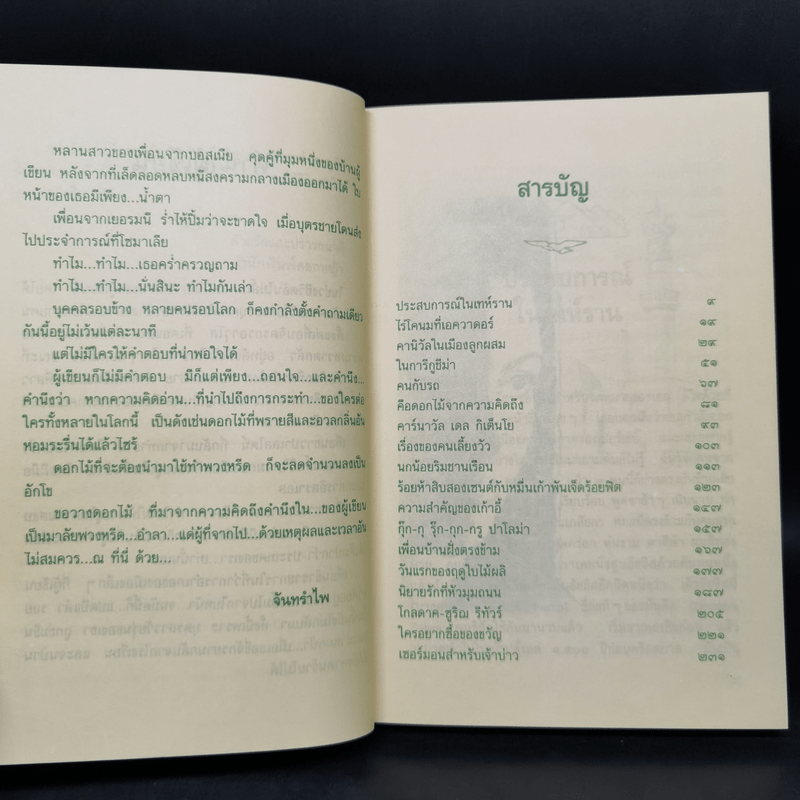 หลานสาวของเพื่อนจากบอสเนีย คุดคู้ที่มุมหนึ่งของบ้านผู้
เขียน หลังจากที่เล็ดลอดหลบหนีสงครามกลางเมืองออกมาได้ ใบ
หน้าของเธอมีเพียง...น้ำตา
เพื่อนจากเยอรมนี ร่ำไห้ปิ้มว่าจะขาดใจ เมื่อบุตรชายโดนส่ง
ไปประจำการณ์ที่โซมาเลีย
ทำไม...ทำไม...เธอคร่ำครวญถาม
ทำไม...ทำไม...นั่นสินะ ทำไมกันเล่า
บุคคลรอบข้าง หลายคนรอบโลก ก็คงกำลังตั้งคำถามเดียว
กันนี้อยู่ไม่เว้นแต่ละนาที
แต่ไม่มีใครให้คำตอบที่น่าพอใจได้
ผู้เขียนก็ไม่มีคำตอบ มีก็แต่เพียง...ถอนใจ...และคำนึง...
คำนึงว่า หากความคิดอ่าน...ที่นำไปถึงการกระทำ...ของใครต่อ
ใครทั้งหลายในโลกนี้ เป็นดังเช่นดอกไม้ที่พรายสีและอวลกลิ่นอัน
หอมระรื่นได้แล้วไซร้
ดอกไม้ที่จะต้องนำมาใช้ทำพวงหรีด ก็จะลดจำนวนลงเป็น
อักโข
ขอวางดอกไม้ ที่มาจากความคิดถึงคำนึงใน...ของผู้เขียน
เป็นมาลัยพวงหรีด...อำลา...แด่ผู้ที่จากไป...ด้วยเหตุผลและเวลาอัน
ไม่สมควร...ณ ที่นี่ ด้วย...
จันทรำไพ
สารบัญ
ประสบการณ์ในเทห์ราน ๙
ไร่โคนมที่เอควาดอร์ ๑๙
คานิวัลในเมืองลูกผสม ๒๙
ในการิกูชีม่า ๕๑
คนกับรถ ๖๗
คือดอกไม้จากความคิดถึง ๘๑
คาร์นาวัล เดล กิเต็นโย ๙๓
เรื่องของคนเลี้ยงวัว ๑๐๓
นกน้อยริมชานเรือน ๑๑๓
ร้อยห้าสิบสองเซนต์กับหมื่นเก้าพันเจ็ดร้อยฟิต ๑๒๓
ความสำคัญของเก้าอี้ ๑๔๗
กุ๊ก-กุ จุ๊ก-กุก-กรู ปาโลม่า ๑๕๗
เพื่อนบ้านฝั่งตรงข้าม ๑๖๗
วันแรกของฤดูใบไม้ผลิ ๑๗๗
นิยายรักที่หัวมุมถนน ๑๘๗
โกลดาค-ซูริฌ รีทัวร์ ๒๐๕
ใครอยากซื้อของขวัญ ๒๒๑
เซอร์มอนสำหรับเจ้าบ่าว ๒๓๑